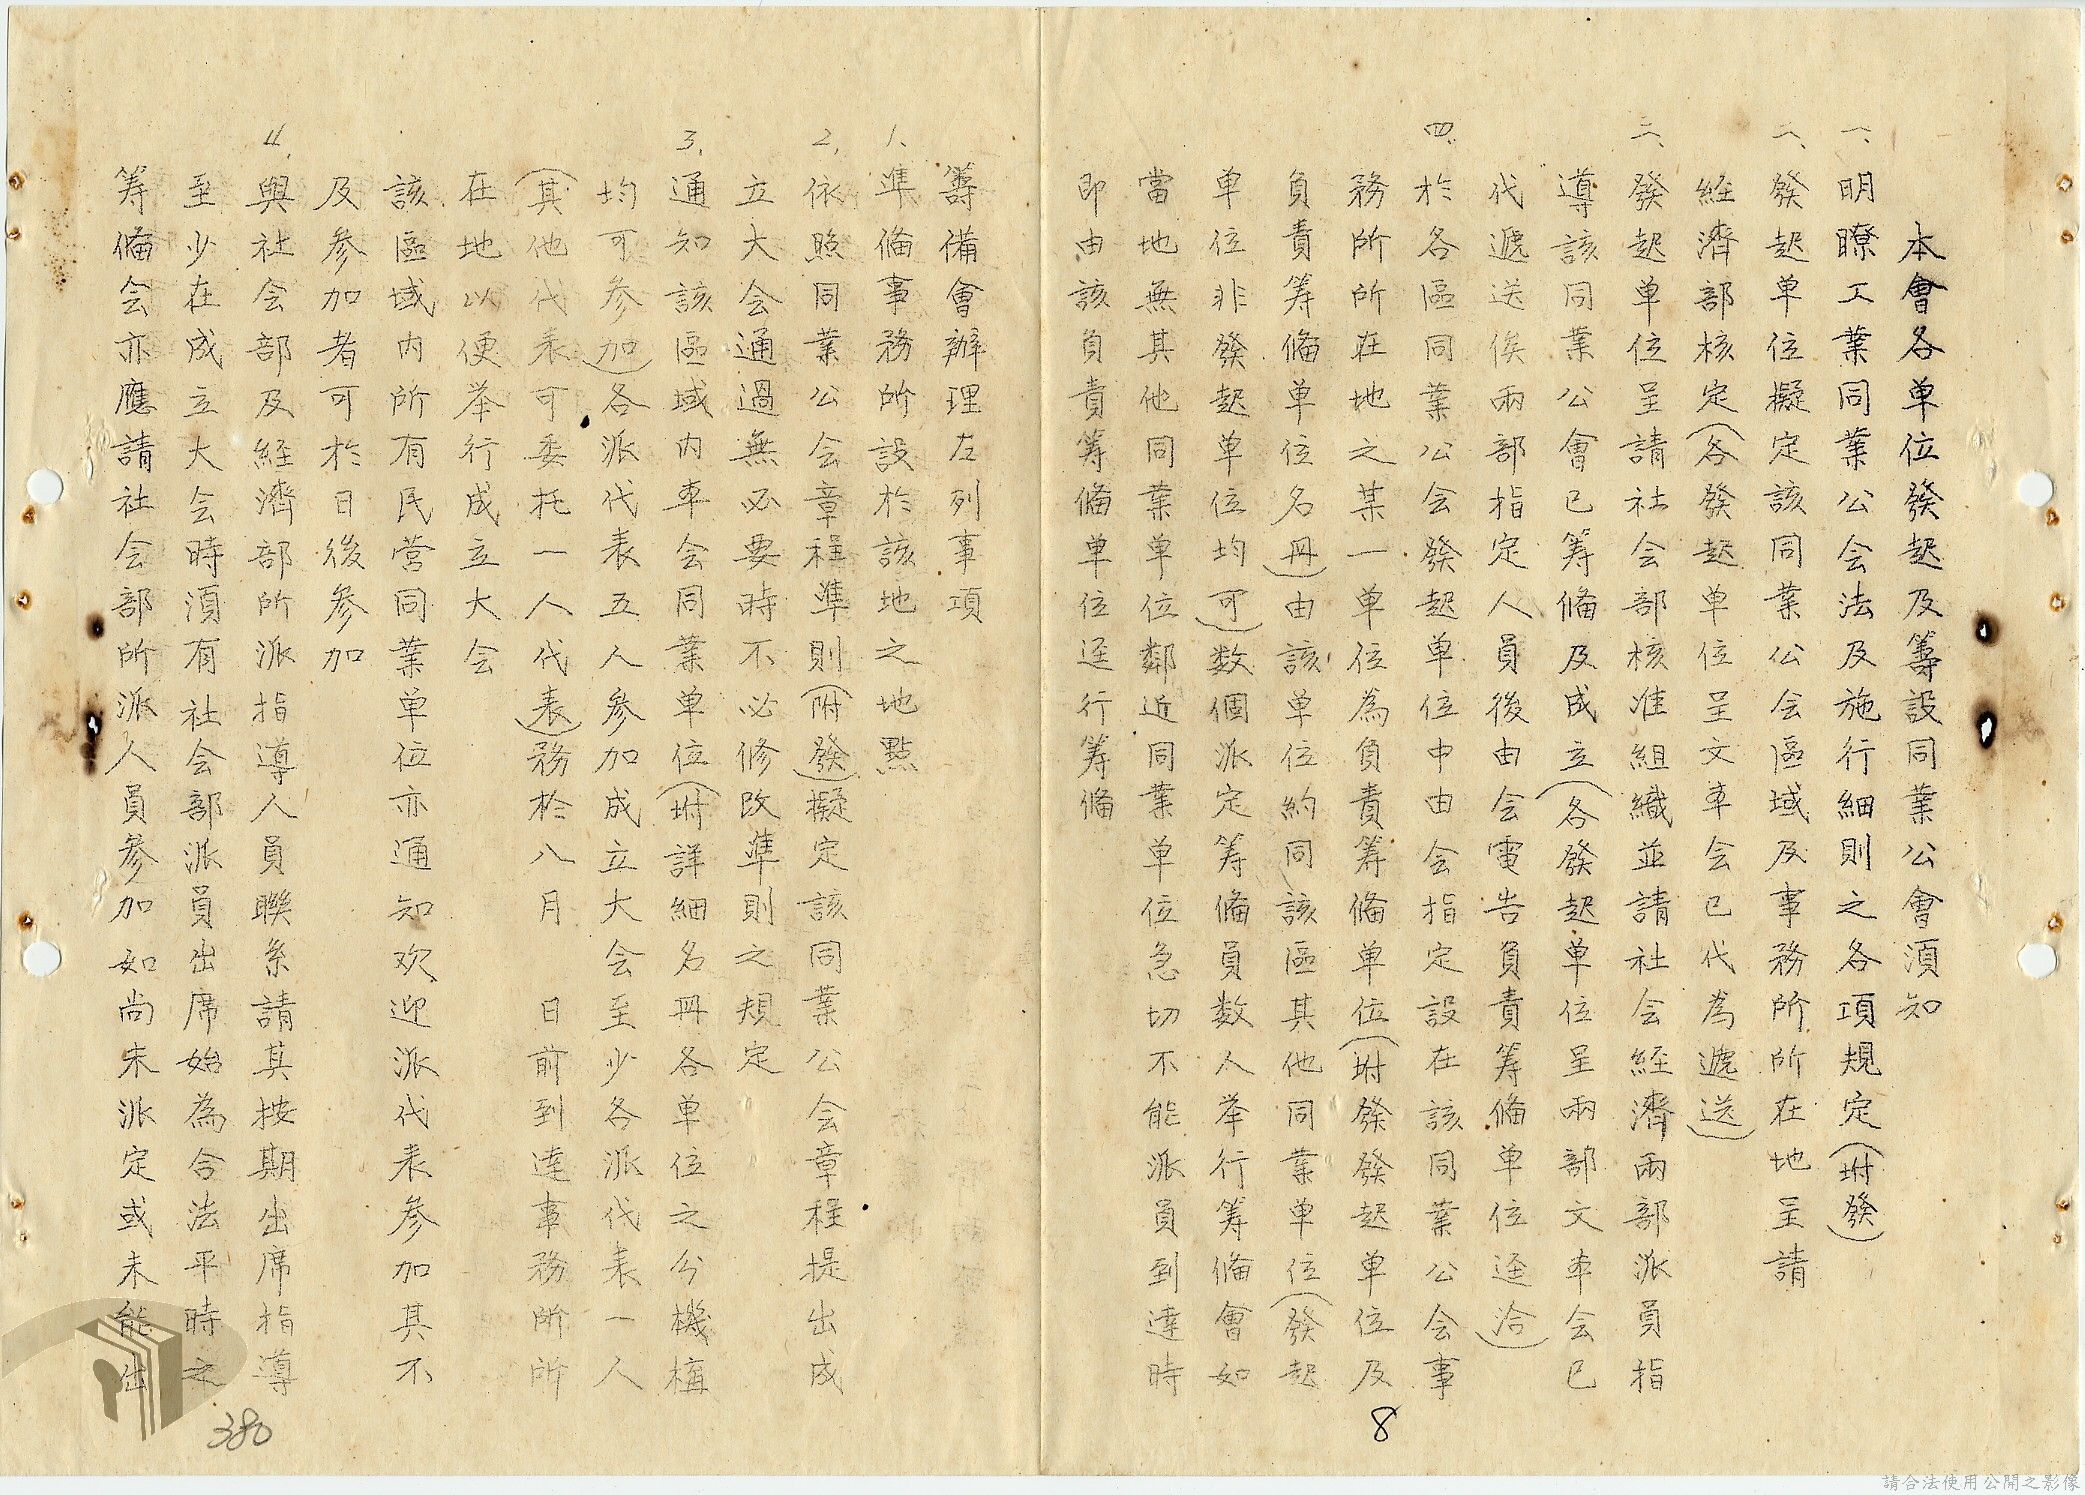 本會各单位發起及籌設同業公會須知
一、明瞭工業同業公会法及施行細則之各項規定(坿發)
二、發起单位擬定該同業公会區域及事務所所在地呈請
經濟部核定(各發起单位呈文本会已代為遞送)
三、發起单位呈請社会部核准組織並請社会經濟兩部派員指
導該同業公會已筹俻及成立(各發起单位呈兩部文本会已
代遞送俟兩部指定人員後由会電告負責筹俻单位逕洽)
四、於各區同業公会發起单位中由会指定設在該同業公会事
務所所在地之某一单位為負責筹俻单位(坿發發起单位及
負責筹俻单位名冊)由該单位約同該區其他同業单位(發起
单位非發起单位均可)数個派定筹俻員数人举行筹俻會如
當地無其他同業单位鄰近同業单位急切不能派員到達時
即由該負責筹俻单位逕行筹俻
籌備會辦理左列事項
1、準俻事務所設於該地之地點
2、依照同業公会章程準則(附發)擬定該同業公会章程提出成
立大会通過無必要時不必修改準則之規定
3、通知該區域內本会同業单位(坿詳細名冊各单位之分機構
均可参加)各派代表五人参加成立大会至少各派代表一人
(其他代表可委托一人代表)務於八月 日前到達事務所所
在地以便举行成立大会
該區域内所有民营同業单位亦通知欢迎派代表参加其不
及参加者可於日後参加
4、與社会部及経濟部所派指導人員聯系請其按期出席指導
至少在成立大会時須有社会部派員出席始為合法平時之
筹俻会亦應請社会部所派人員参加如尚未派定或未能出
8
380
請合法使用公開之影像